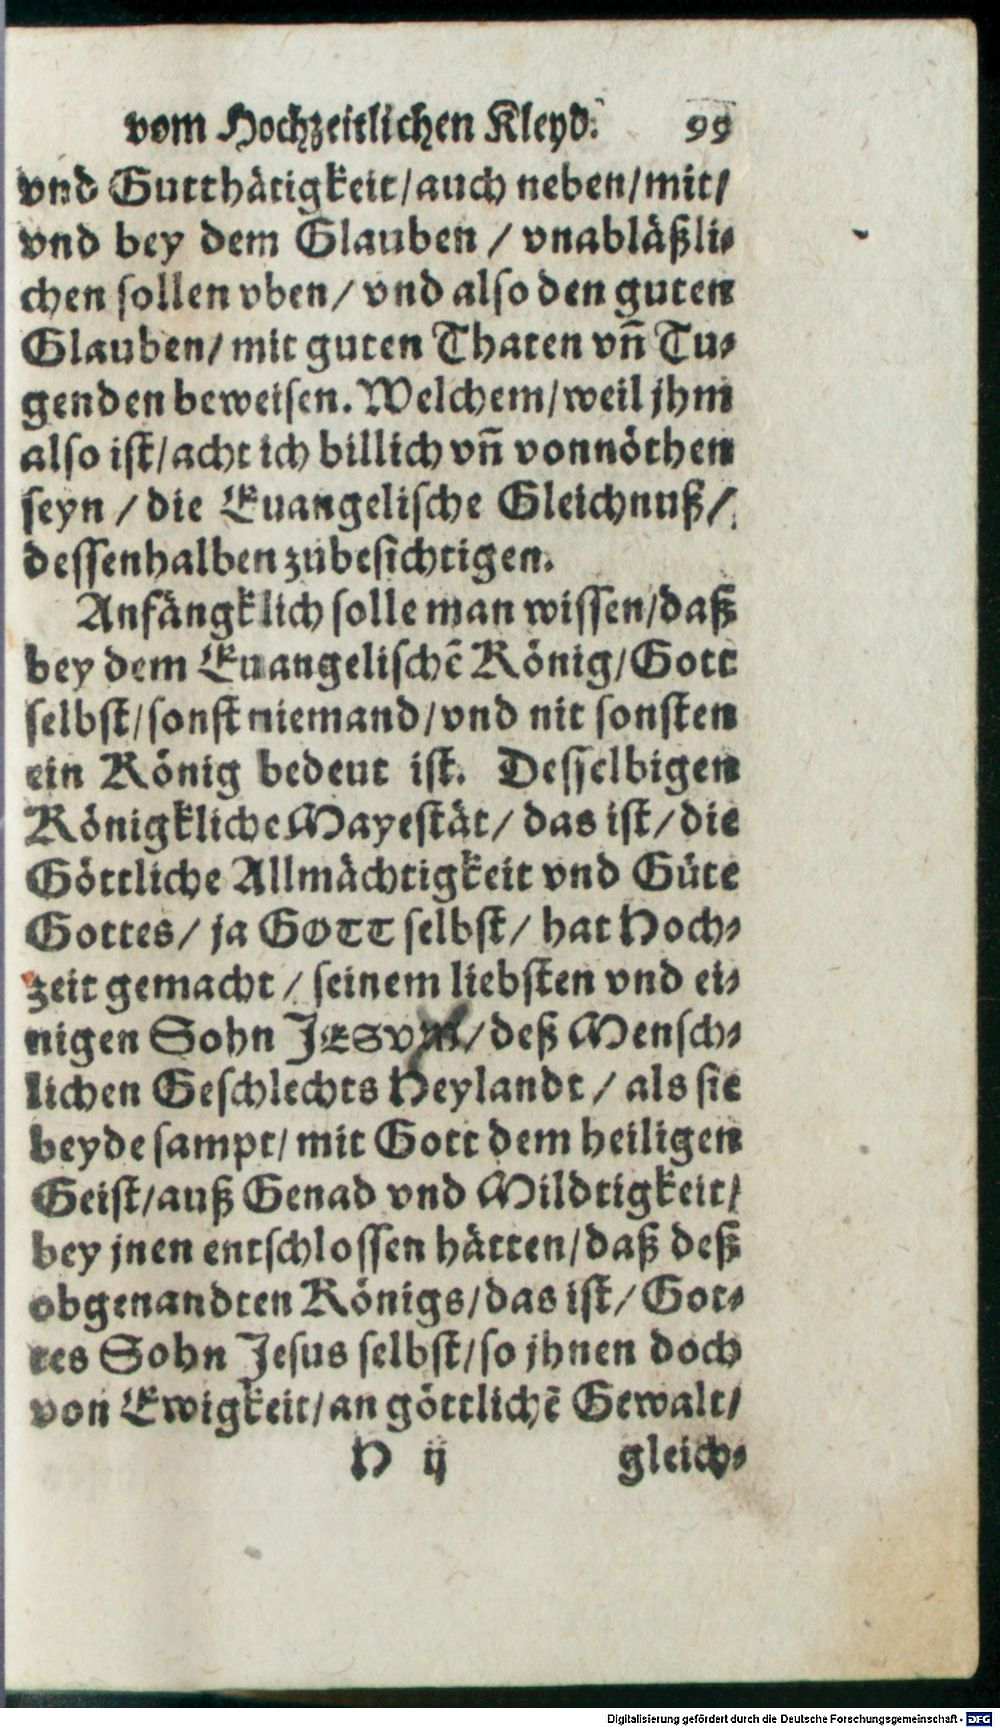 vom Hochzeitlichen Kleyd. 99
vnd Gutthätigkeit/auch neben/mit/
vnd bey dem Glauben / vnabläßli-
chen sollen vben/ vnd also den guten
Glauben/ mit guten Thaten vñ Tu-
genden beweisen. Welchem/weil jhm
also ist/acht ich billich vñ vonnöthen
seyn / die Euangelische Gleichnuß/
dessenhalben zubesichtigen.
Anfängklich solle man wissen/daß
bey dem Euangelischẽ König/Gott
selbst/sonst niemand/vnd nit sonsten
ein König bedeut ist. Desselbigen
Königkliche Mayestät/ das ist/ die
Göttliche Allmächtigkeit vnd Güte
Gottes/ ja GOTT selbst/ hat Hoch-
zeit gemacht / seinem liebsten vnd ei-
nigen Sohn JESVM/deß Mensch-
lichen Geschlechts Heylandt / als sie
beyde sampt/ mit Gott dem heiligen
Geist/auß Genad vnd Mildtigkeit/
bey jnen entschlossen hätten/daß deß
obgenandten Königs/das ist/ Got-
tes Sohn Jesus selbst/so jhnen doch
von Ewigkeit/an göttlichẽ Gewalt/
H ij gleich-
Digitalisierung gefördert durch die Deutsche Forschungsgemeinschaft - DFG